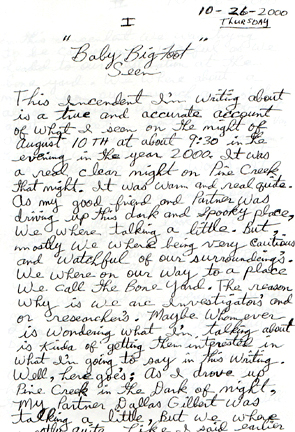 10-26-2000
THURSDAY
I
"Baby Bigfoot"
Seen
This Incendent I'm writing about
is a true and accurate account
of what I seen on the night of
August 10TH at about 9:30 in the
evening in the year 2000. It was
a real clear night on Pine Creek
that night. It was warm and real quite.
As my good friend and Partner was
driving up this dark and spooky place,
We where talking a little. But,
mostly we where being very cautious
and watchful of our surrounding's.
We where on our way to a place
We call The Bone Yard. The reason
why is we are Investigator's and
or researcher's. Maybe whomever
is wondering what I'm talking about
is Kinda of getting them interested in
what I'm going to say in this writing.
Well, here goes; As I drove up
Pine Creek in the Dark of night,
my Partner Dallas Gilbert was
talking a little, But we where
Like I said earlier